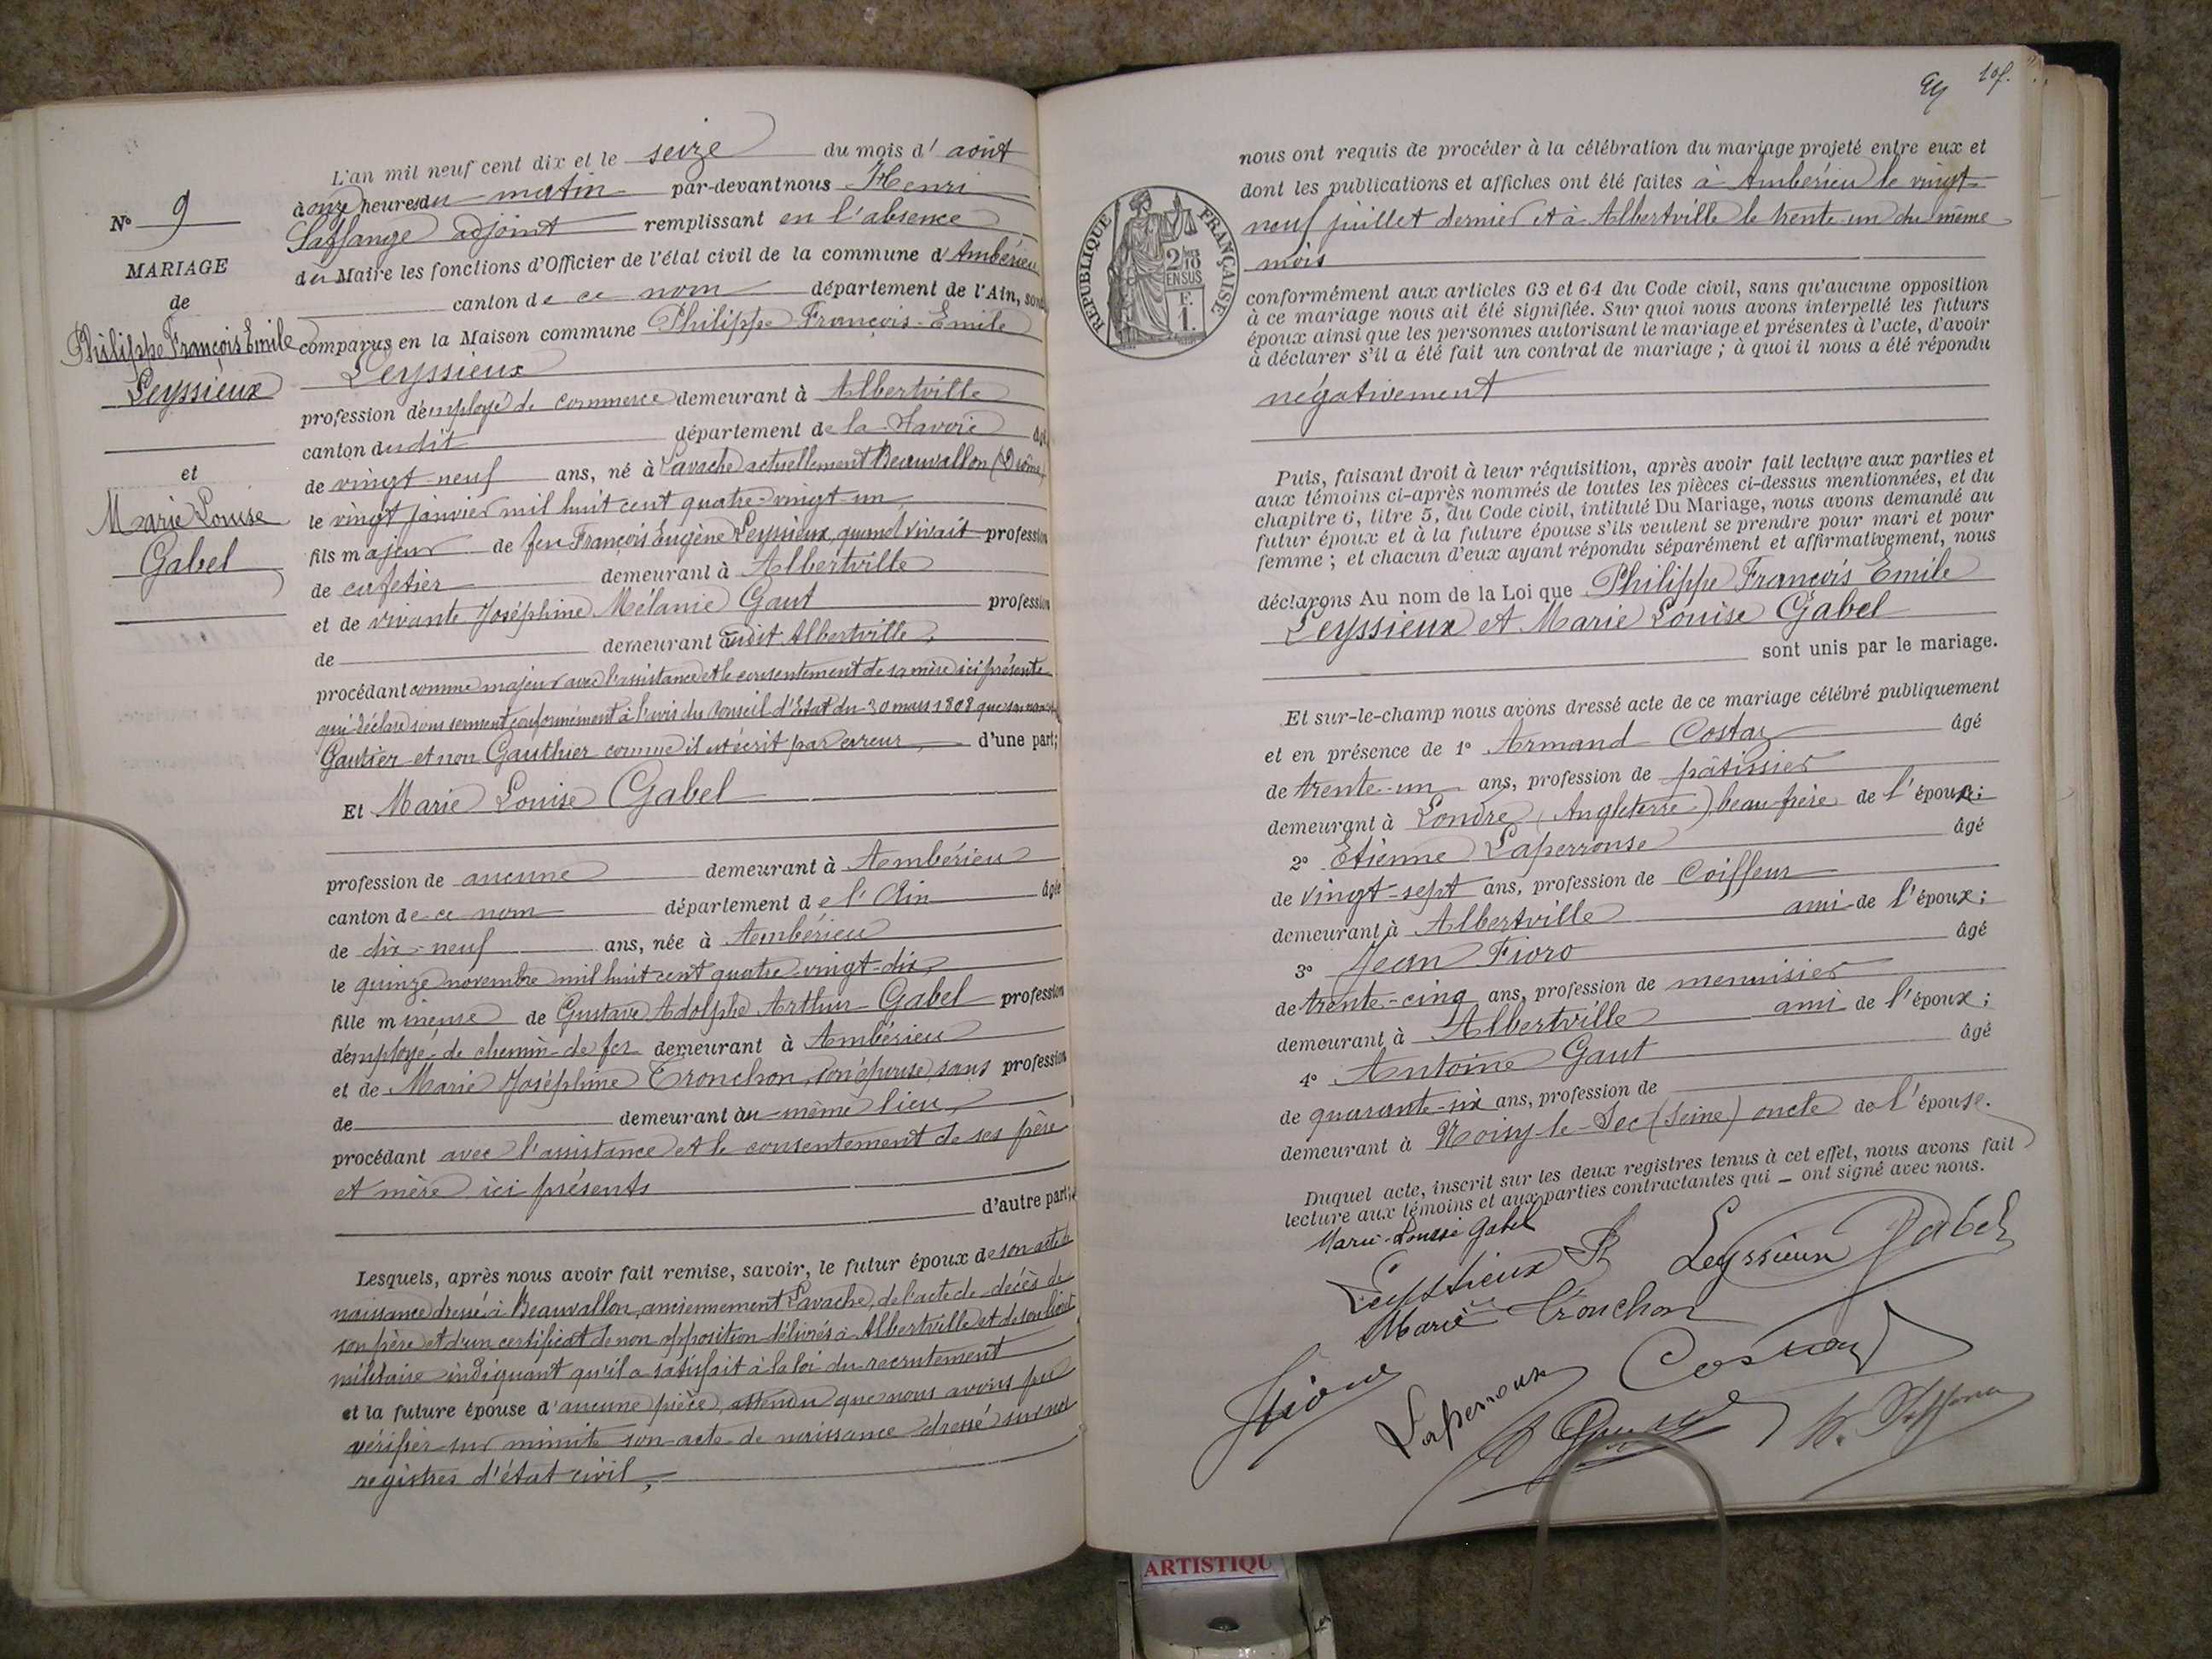 L'an mil neuf cent dix et le seize du mois d'août
à onze heures du matin par-devant nous Henri
Saffange adjoint remplissant en l'absence
du Maire les fonctions d'Officier de l'état civil de la commune d'Ambérieu
canton de ce nom département de l'Ain, sont
comparus en la Maison commune Philippe François Emile
Leyssieux
profession d'employé de commerce demeurant à Albertville
canton dudit département de la Savoie âgé
de vingt-neuf ans, né à Lavache actuellement Beauvallon (Drôme)
le vingt janvier mil huit cent quatre-vingt-un
fils majeur de feu François Eugène Leyssieux, quand vivait profession
de cafetier demeurant à Albertville
et de vivante Joséphine Mélanie Gaut profession
de demeurant audit Albertville,
procédant comme majeur avec l'assistance et le consentement de sa mère ici présente
qui déclare sous serment conformément à l'avis du Conseil d'Etat du 30 mars 1808 que son
Gautier et non Gauthier comme il est écrit par erreur d'une part;
Et Marie Louise Gabel
profession de aucune demeurant à Ambérieu
canton de ce nom département de l'Ain âgée
de dix-neuf ans, née à Ambérieu
le quinze novembre mil huit cent quatre-vingt-dix,
fille mineure de Gustave Adolphe Arthur Gabel profession
d'employé de chemin de fer demeurant à Ambérieu
et de Marie Joséphine Tronchon, son épouse, sans profession
de demeurant au même lieu,
procédant avec l'assistance et le consentement de ses père
et mère ici présents
d'autre part;
Lesquels, après nous avoir fait remise, savoir, le futur époux de son acte de
naissance dressé à Beauvallon, anciennement Lavache, de l'acte de décès de
son père et d'un certificat de non opposition délivrés à Albertville et de son livret
militaire indiquant qu'il a satisfait à la loi du recrutement
et la future épouse d'aucune pièce, attendu que nous avons pu
vérifier sur minute son acte de naissance dressé sur nos
registres d'état civil,
N° 9
MARIAGE
de
Philippe François Emile
Leyssieux
et
Marie Louise
Gabel
RÉPUBLIQUE FRANÇAISE
2/10
EN SUS
F.
1.
nous ont requis de procéder à la célébration du mariage projeté entre eux et
dont les publications et affiches ont été faites à Ambérieu le vingt-
neuf juillet dernier et à Albertville le trente-un du même
mois
conformément aux articles 63 et 64 du Code civil, sans qu'aucune opposition
à ce mariage nous ait été signifiée. Sur quoi nous avons interpellé les futurs
époux ainsi que les personnes autorisant le mariage et présentes à l'acte, d'avoir
à déclarer s'il a été fait un contrat de mariage; à quoi il nous a été répondu
négativement
Puis, faisant droit à leur réquisition, après avoir fait lecture aux parties et
aux témoins ci-après nommés de toutes les pièces ci-dessus mentionnées, et du
chapitre 6, titre 5, du Code civil, intitulé Du Mariage, nous avons demandé au
futur époux et à la future épouse s'ils veulent se prendre pour mari et pour
femme; et chacun d'eux ayant répondu séparément et affirmativement, nous
déclarons Au nom de la Loi que Philippe François Emile
Leyssieux et Marie Louise Gabel
sont unis par le mariage.
Et sur-le-champ nous avons dressé acte de ce mariage célébré publiquement
et en présence de 1° Armand Costaz âgé
de trente-un ans, profession de pâtissier
demeurant à Londre (Angleterre) beau-frère de l'épouse;
2° Etienne Laperrouse âgé
de vingt-sept ans, profession de Coiffeur
demeurant à Albertville ami de l'époux;
3° Jean Fioro âgé
de trente-cinq ans, profession de menuisier
demeurant à Albertville ami de l'époux;
4° Antoine Gaut âgé
de quarante-six ans, profession de
demeurant à Noisy-le-Sec (Seine) oncle de l'épouse.
Duquel acte, inscrit sur les deux registres tenus à cet effet, nous avons fait
lecture aux témoins et aux parties contractantes qui ont signé avec nous.
Marie-Louise Gabel
Leyssieux Leyssieux Gabel
Marie Tronchon
Laperrouse Costaz
ARTISTIQU